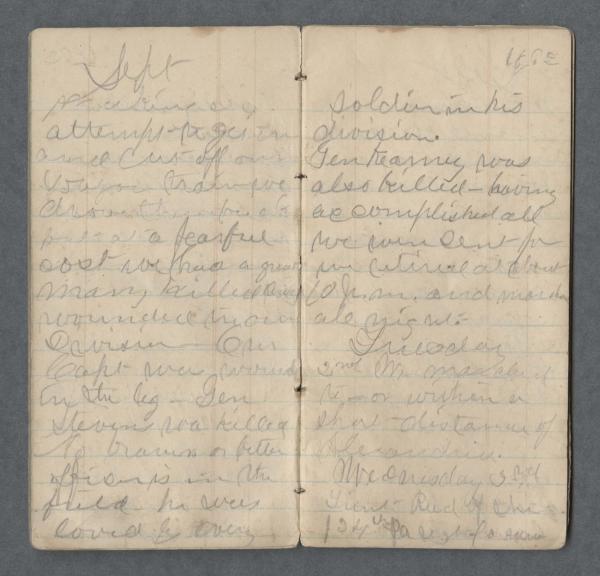 Sept
making an
attempt to get in
and cut off our
wagon train we
drove them back
but at a fearful
cost we had a great
many killed and
wounded in our
Division - Our
Capt was wound
in the leg - Gen
Stevens was killed
No braver or better
officer is in the
field he was
loved by every
1862
soldier in his
division.
Gen Kearney was
also killed - having
accomplished all
we were sent for
we retired at about
10 p.m. and march
all night.
Tuesday
2nd We marched
to or within a
short distance of
Alexandria.
Wednesday 3rd
Lieut Reed of the